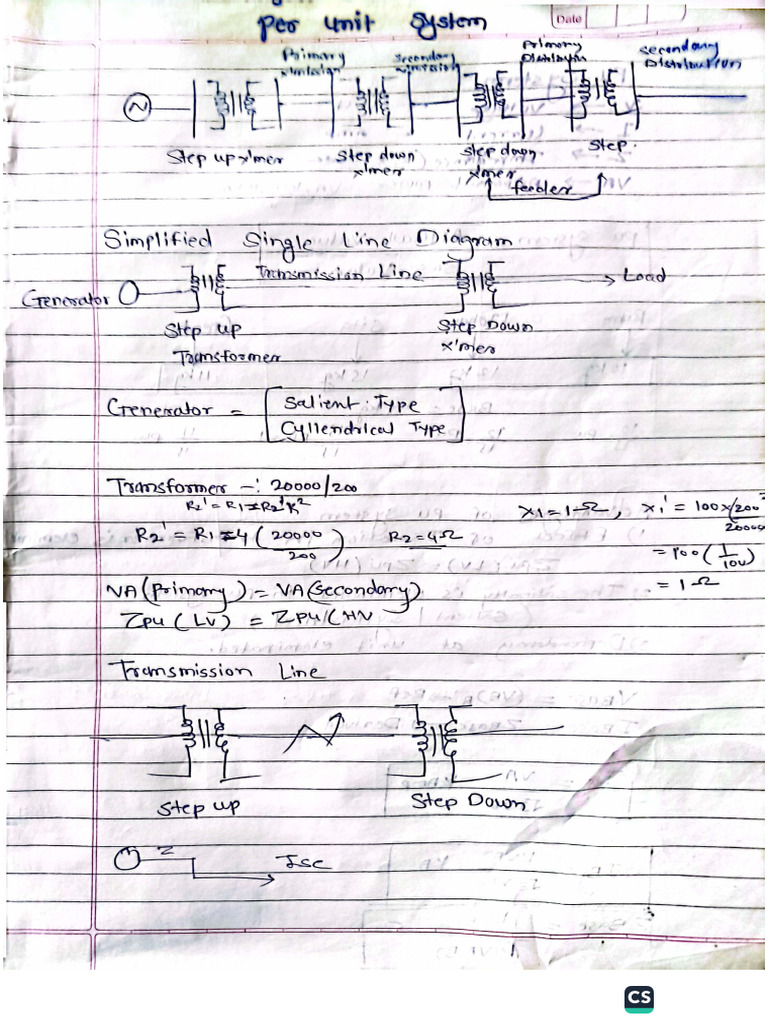 Per unit System
Date
Primary x'mission
Secondary x'mission
Primary Distribution
Secondary Distribution
Step up x'mer
Step down x'mer
Step down x'mer
Step.
feebler
Simplified Single Line Diagram
Generator
Transmission Line
Load
Step up Transformer
Step Down x'mer
Generator = [Salient Type
Cyllendrical Type]
Transformer -: 20000/200
R2' = R1 = R2'K²
X1=1Ω, X1' = 100x(200²
20000
R2' = R1 = 4 (20000/200) R2=4Ω
= 100 (1/100)
= 1Ω
VA(Primary) = VA(Secondary)
Zpu (LV) = Zpu (HV
Transmission Line
Step up
Step Down
Z
Isc
CS